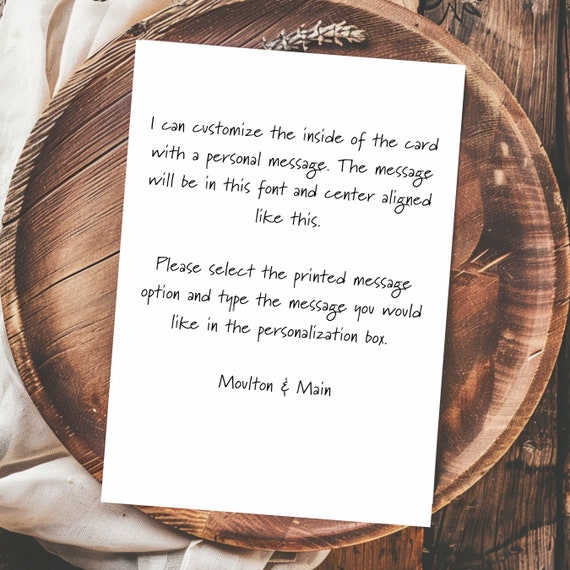 I can customize the inside of the card
with a personal message. The message
will be in this font and center aligned
like this.
Please select the printed message
option and type the message you would
like in the personalization box.
Moulton & Main